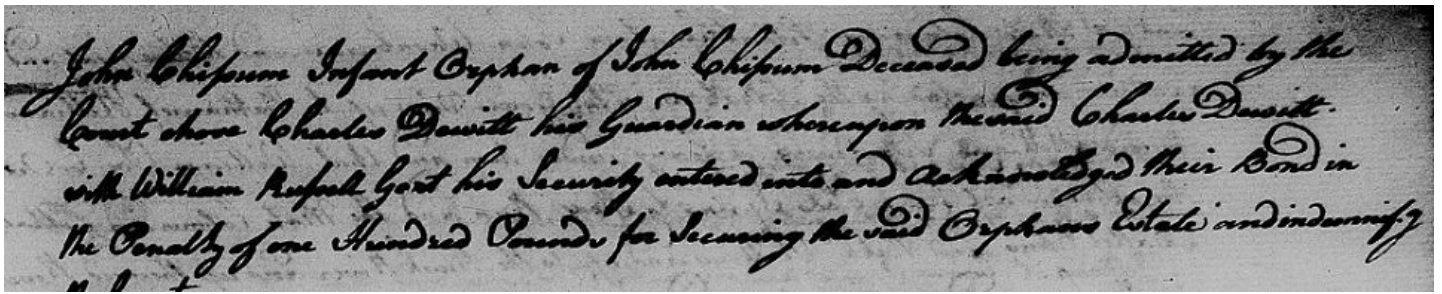 John Chissum Infant Orphan of John Chissum Deceased being admitted by the
Court chose Charles Dewitt his Guardian whereupon the said Charles Dewitt.
with William Russell Gent his Security entered into and acknowledged their Bond in
the Penalty of one Hundred Pounds for Securing the said Orphans Estate and indemnify